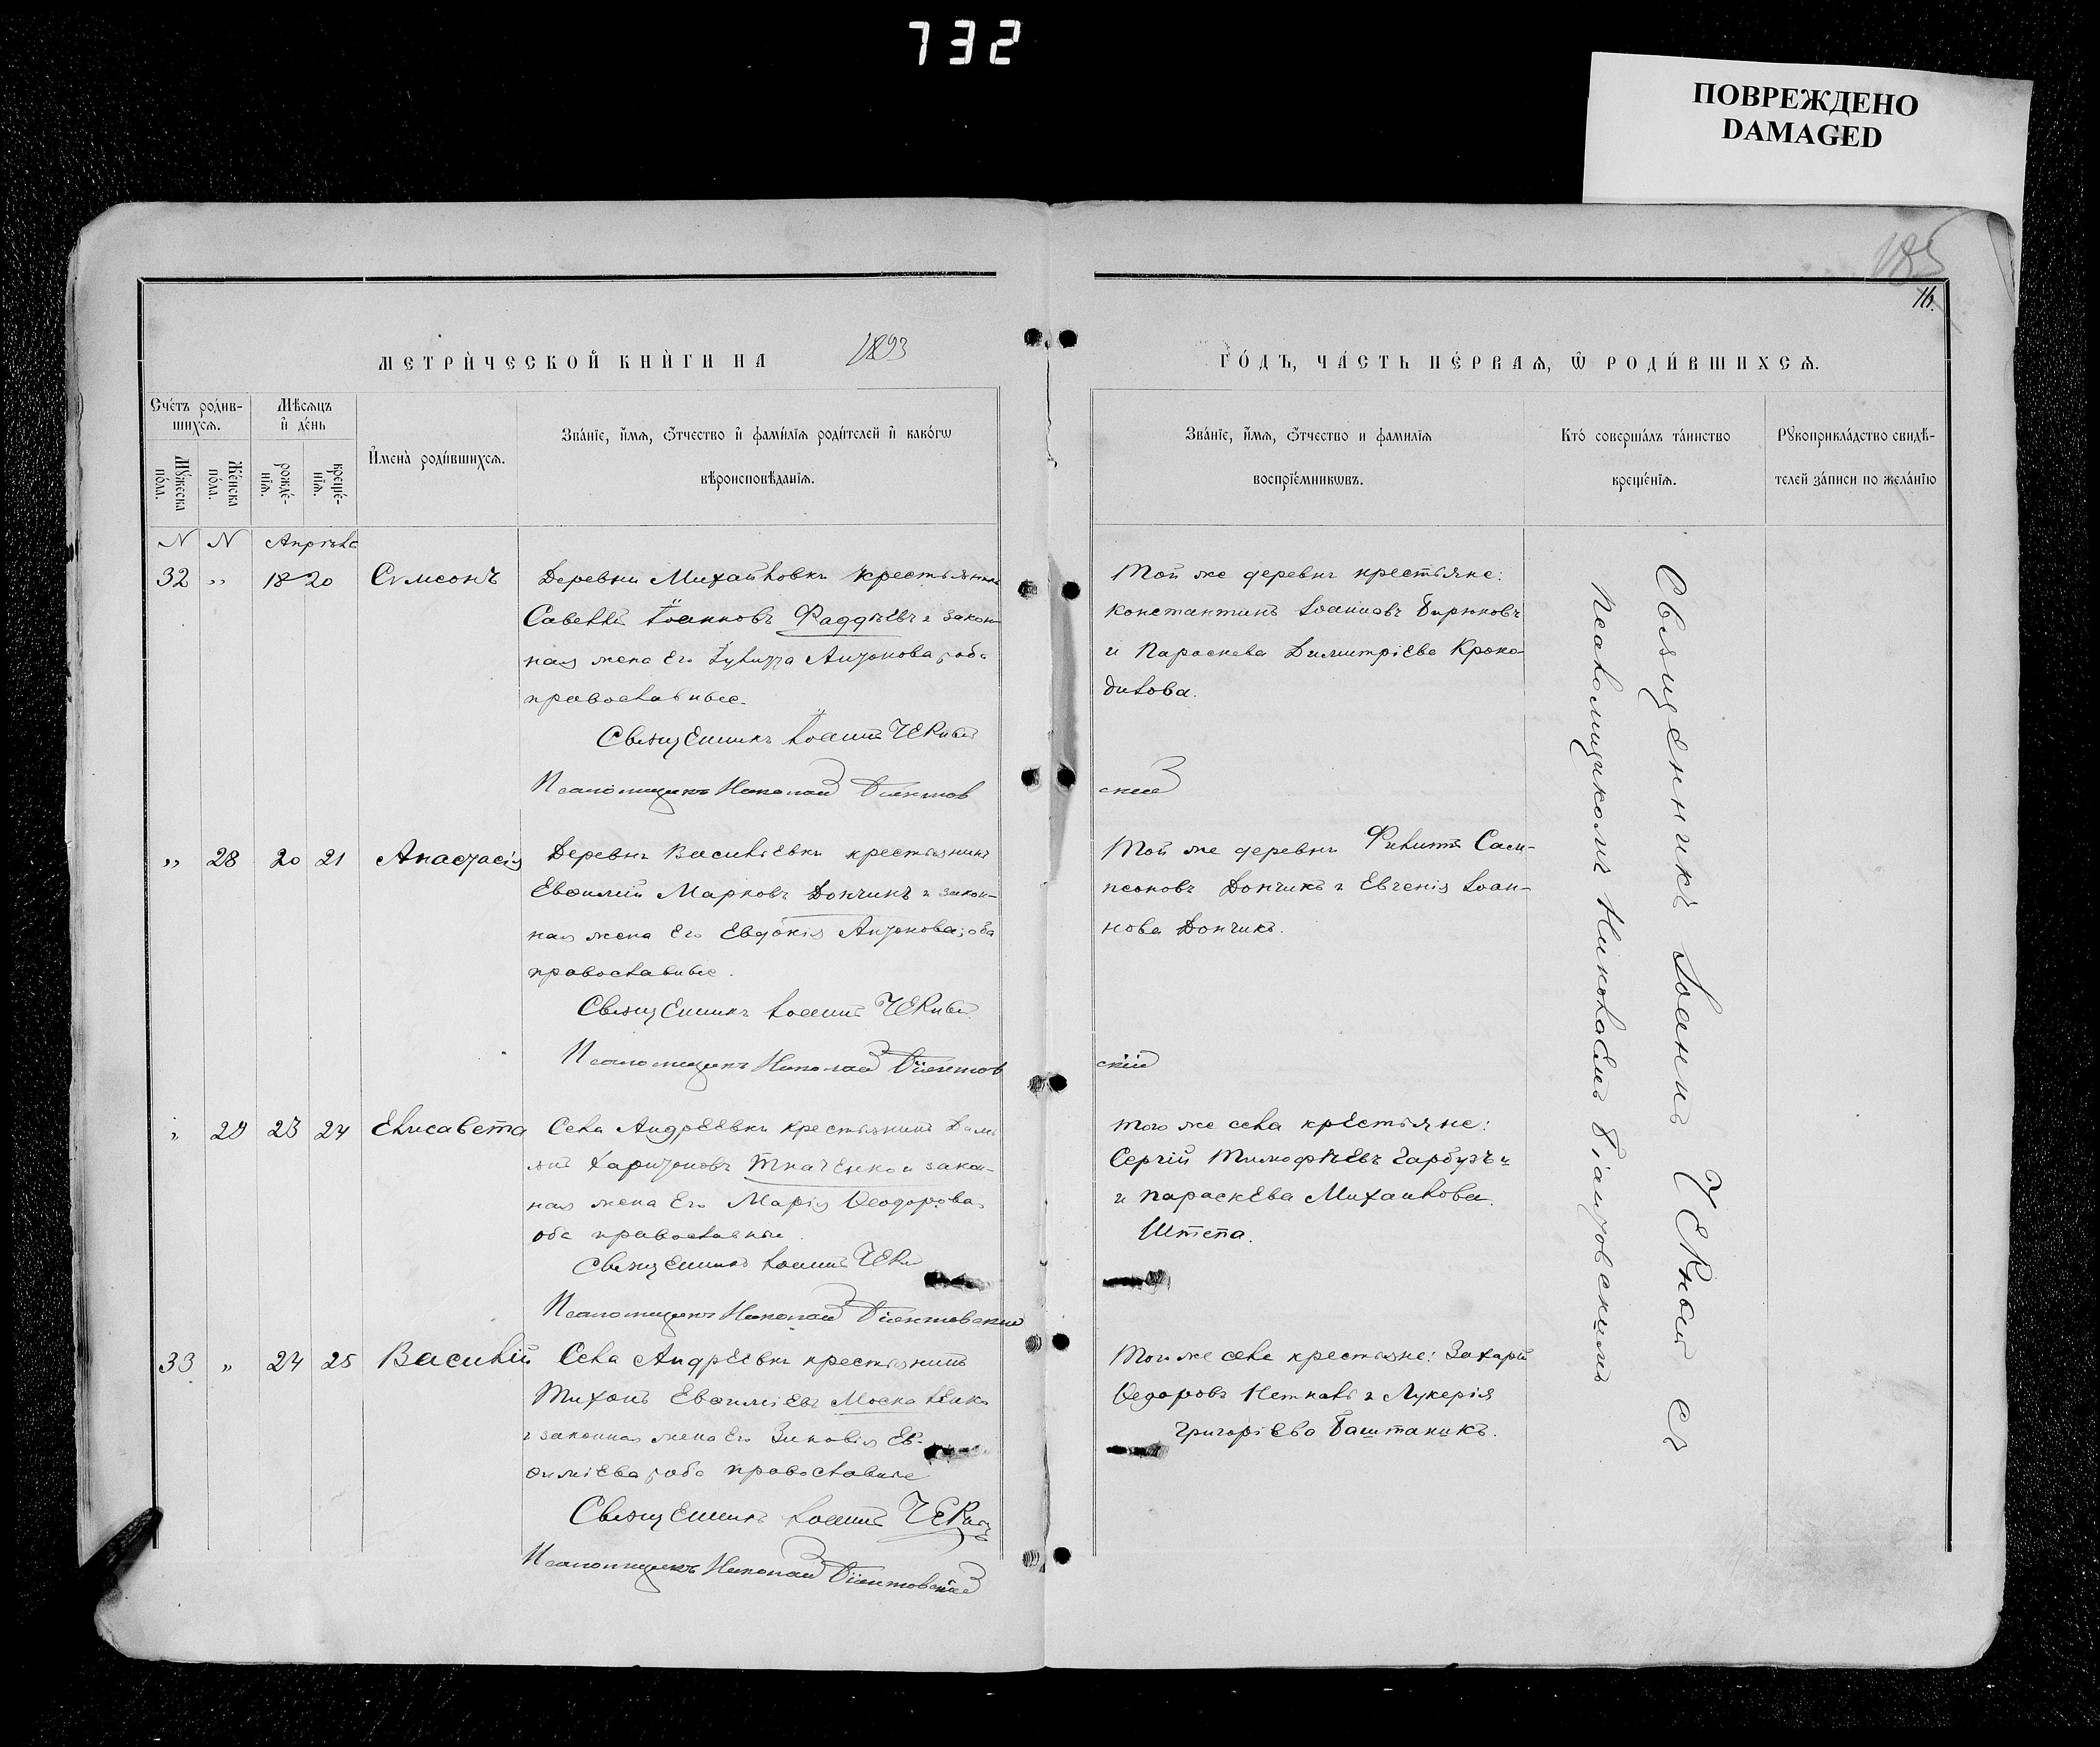 732
ПОВРЕЖДЕНО
DAMAGED
185
16.
МЕТРИ́ЧЕСКОЙ КНИ́ГИ НА 1893
ГО́ДЪ, ЧА́СТЬ ПЕ́РВАѦ, Ѿ РОДИ́ВШИХСѦ.
Сче́тъ роди́в-
шихсѧ.
Мѣсѧцъ
и де́нь
Му́жеска
по́ла.
Же́нска
по́ла.
рожде́-
нїѧ.
креще́-
нїѧ.
И҆мена̀ роди́вшихсѧ.
Зва́нїе, и҆́мѧ, ѻ҆́тчество и҆ фами́лїѧ роди́телей и҆ како́гѡ
вѣроисповѣ́данїѧ.
Зва́нїе, и҆́мѧ, ѻ҆́тчество и фамилїѧ
воспрїе́мникѡвъ.
Кто̀ соверша́лъ та́инство
креще́нїѧ.
Рꙋкоприкла́дство свидѣ́-
телей за́писи по жела́нїю
N N Апрѣль
32 „ 18 20 Сѵмеонъ
Деревни Михайловки крестьянинъ
Савелій Іоанновъ Фаддѣевъ и закон-
ная жена его Антонова, оба
православные.
Священникъ Іоаннъ
Псаломщикъ Николай Біянтов
Той же деревни крестьяне:
Константинъ Іоанновъ Бирюковъ
и Параскева Димитріева Кроко-
дилова.
скій
„ 28 20 21 Анастасія
Деревни Васильевки крестьянинъ
Евѳимій Марковъ Дончикъ и закон-
ная жена его Евдокія Антонова; оба
православные.
Священникъ Іоаннъ
Псаломщикъ Николай Біянтов
Той же деревни Филиппъ Сам-
псоновъ Дончикъ и Евгенія Іоан-
нова Дончикъ.
скій
„ 29 23 24 Елисавета
Села Андреевки крестьянинъ Дамі-
янъ Харитоновъ Ткаченко и закон-
ная жена его Марія Ѳеодорова,
оба православные.
Священникъ Іоаннъ
Псаломщикъ Николай Біянтовскій
Того же села крестьяне:
Сергій Тимофѣевъ Гарбузъ и
и Параскева Михайлова
Штепа.
33 „ 24 25 Василій
Села Андреевки крестьянинъ
Тихонъ Евѳиміевъ Москаленко
и законная жена его Зиновія Ев-
ѳиміева, оба православные
Священникъ Іоаннъ
Псаломщикъ Николай Біянтовскій
Того же села крестьяне: Захарій
Ѳедоровъ и Лукерія
Григоріева Баштаникъ.
Священникъ Іоаннъ съ
псаломщикомъ Николаемъ Біантовскимъ